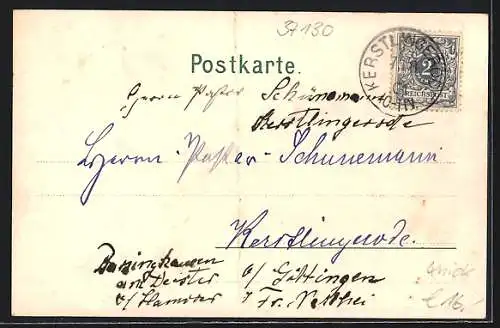 37130
Postkarte.
KERSTLINGERODE
2
REICHSPOST
Herrn Pastor Schünemann
Kerstlingerode
Herrn Pastor Schünemann
Kerstlingerode.
Barsinghausen
am Deister
b/ Hannover
b/ Göttingen